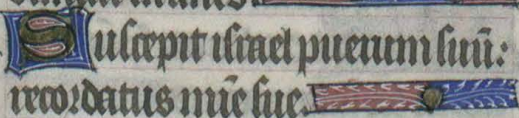 Suscepit israel puerum suū:
recordatus mīe sue.